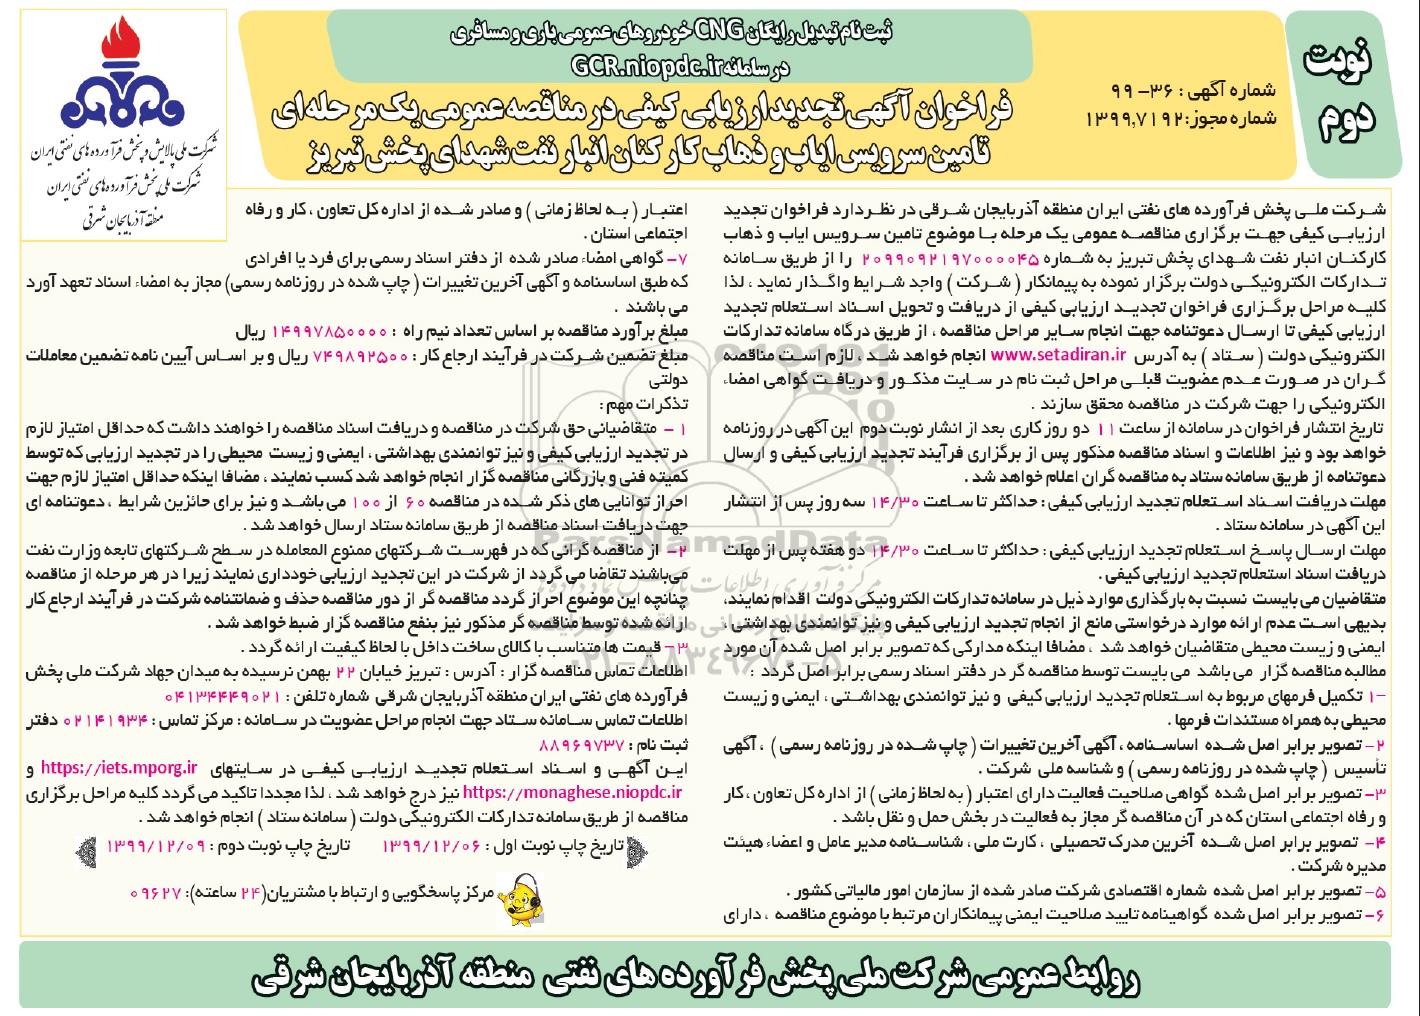 نوبت
دوم
شماره آگهی : ۳۶- ۹۹
شماره مجوز: ۱۳۹۹,۷۱۹۲
ثبت نام تبدیل رایگان CNG خودروهای عمومی باری و مسافری
در سامانه GCR.niopdc.ir
فراخوان آگهی تجدید ارزیابی کیفی در مناقصه عمومی یک مرحله ای
تامین سرویس ایاب و ذهاب کارکنان انبار نفت شهدای پخش تبریز
شرکت ملی پالایش و پخش فرآورده های نفتی ایران
شرکت ملی پخش فرآورده های نفتی ایران
منطقه آذربایجان شرقی
شرکت ملی پخش فرآورده های نفتی ایران منطقه آذربایجان شرقی در نظر دارد فراخوان تجدید
ارزیابی کیفی جهت برگزاری مناقصه عمومی یک مرحله با موضوع تامین سرویس ایاب و ذهاب
کارکنان انبار نفت شهدای پخش تبریز به شماره ۲۰۹۹۰۹۲۱۹۷۰۰۰۰۴۵ را از طریق سامانه
تدارکات الکترونیکی دولت برگزار نموده به پیمانکار ( شرکت ) واجد شرایط واگذار نماید ، لذا
کلیه مراحل برگزاری فراخوان تجدید ارزیابی کیفی از دریافت و تحویل اسناد استعلام تجدید
ارزیابی کیفی تا ارسال دعوتنامه جهت انجام سایر مراحل مناقصه ، از طریق درگاه سامانه تدارکات
الکترونیکی دولت ( ستاد ) به آدرس www.setadiran.ir انجام خواهد شد ، لازم است مناقصه
گران در صورت عدم عضویت قبلی مراحل ثبت نام در سایت مذکور و دریافت گواهی امضاء
الکترونیکی را جهت شرکت در مناقصه محقق سازند .
تاریخ انتشار فراخوان در سامانه از ساعت ۱۱ دو روز کاری بعد از انشار نوبت دوم این آگهی در روزنامه
خواهد بود و نیز اطلاعات و اسناد مناقصه مذکور پس از برگزاری فرآیند تجدید ارزیابی کیفی و ارسال
دعوتنامه از طریق سامانه ستاد به مناقصه گران اعلام خواهد شد .
مهلت دریافت اسناد استعلام تجدید ارزیابی کیفی : حداکثر تا ساعت ۱۴/۳۰ سه روز پس از انتشار
این آگهی در سامانه ستاد .
مهلت ارسال پاسخ استعلام تجدید ارزیابی کیفی : حداکثر تا ساعت ۱۴/۳۰ دو هفته پس از مهلت
دریافت اسناد استعلام تجدید ارزیابی کیفی .
متقاضیان می بایست نسبت به بارگذاری موارد ذیل در سامانه تدارکات الکترونیکی دولت اقدام نمایند،
بدیهی است عدم ارائه موارد درخواستی مانع از انجام تجدید ارزیابی کیفی و نیز توانمندی بهداشتی ،
ایمنی و زیست محیطی متقاضیان خواهد شد ، مضافا اینکه مدارکی که تصویر برابر اصل شده آن مورد
مطالبه مناقصه گزار می باشد می بایست توسط مناقصه گر در دفتر اسناد رسمی برابر اصل گردد :
۱- تکمیل فرمهای مربوط به استعلام تجدید ارزیابی کیفی و نیز توانمندی بهداشتی ، ایمنی و زیست
محیطی به همراه مستندات فرمها .
۲- تصویر برابر اصل شده اساسنامه ، آگهی آخرین تغییرات ( چاپ شده در روزنامه رسمی ) ، آگهی
تأسیس ( چاپ شده در روزنامه رسمی ) و شناسه ملی شرکت .
۳- تصویر برابر اصل شده گواهی صلاحیت فعالیت دارای اعتبار ( به لحاظ زمانی ) از اداره کل تعاون ، کار
و رفاه اجتماعی استان که در آن مناقصه گر مجاز به فعالیت در بخش حمل و نقل باشد .
۴- تصویر برابر اصل شده آخرین مدرک تحصیلی ، کارت ملی ، شناسنامه مدیر عامل و اعضاء هیئت
مدیره شرکت .
۵- تصویر برابر اصل شده شماره اقتصادی شرکت صادر شده از سازمان امور مالیاتی کشور .
۶- تصویر برابر اصل شده گواهینامه تایید صلاحیت ایمنی پیمانکاران مرتبط با موضوع مناقصه ، دارای
اعتبار ( به لحاظ زمانی ) و صادر شده از اداره کل تعاون ، کار و رفاه
اجتماعی استان .
۷- گواهی امضاء صادر شده از دفتر اسناد رسمی برای فرد یا افرادی
که طبق اساسنامه و آگهی آخرین تغییرات ( چاپ شده در روزنامه رسمی) مجاز به امضاء اسناد تعهد آورد
می باشند .
مبلغ برآورد مناقصه بر اساس تعداد نیم راه : ۱۴۹۹۷۸۵۰۰۰۰ ریال
مبلغ تضمین شرکت در فرآیند ارجاع کار : ۷۴۹۸۹۲۵۰۰ ریال و بر اساس آیین نامه تضمین معاملات
دولتی
تذکرات مهم :
۱ - متقاضیانی حق شرکت در مناقصه و دریافت اسناد مناقصه را خواهند داشت که حداقل امتیاز لازم
در تجدید ارزیابی کیفی و نیز توانمندی بهداشتی ، ایمنی و زیست محیطی را در تجدید ارزیابی که توسط
کمیته فنی و بازرگانی مناقصه گزار انجام خواهد شد کسب نمایند ، مضافا اینکه حداقل امتیاز لازم جهت
احراز توانایی های ذکر شده در مناقصه ۶۰ از ۱۰۰ می باشد و نیز برای حائزین شرایط ، دعوتنامه ای
جهت دریافت اسناد مناقصه از طریق سامانه ستاد ارسال خواهد شد .
۲- از مناقصه گرانی که در فهرست شرکتهای ممنوع المعامله در سطح شرکتهای تابعه وزارت نفت
می‌باشند تقاضا می گردد از شرکت در این تجدید ارزیابی خودداری نمایند زیرا در هر مرحله از مناقصه
چنانچه این موضوع احراز گردد مناقصه گر از دور مناقصه حذف و ضمانتنامه شرکت در فرآیند ارجاع کار
ارائه شده توسط مناقصه گر مذکور نیز بنفع مناقصه گزار ضبط خواهد شد .
۳- قیمت ها متناسب با کالای ساخت داخل با لحاظ کیفیت ارائه گردد .
اطلاعات تماس مناقصه گزار : آدرس : تبریز خیابان ۲۲ بهمن نرسیده به میدان جهاد شرکت ملی پخش
فرآورده های نفتی ایران منطقه آذربایجان شرقی شماره تلفن : ۰۴۱۳۴۴۴۹۰۲۱
اطلاعات تماس سامانه ستاد جهت انجام مراحل عضویت در سامانه : مرکز تماس : ۰۲۱۴۱۹۳۴ دفتر
ثبت نام : ۸۸۹۶۹۷۳۷
این آگهی و اسناد استعلام تجدید ارزیابی کیفی در سایتهای https://iets.mporg.ir و
https://monaghese.niopdc.ir نیز درج خواهد شد ، لذا مجددا تاکید می گردد کلیه مراحل برگزاری
مناقصه از طریق سامانه تدارکات الکترونیکی دولت ( سامانه ستاد ) انجام خواهد شد .
تاریخ چاپ نوبت اول : ۱۳۹۹/۱۲/۰۶ تاریخ چاپ نوبت دوم : ۱۳۹۹/۱۲/۰۹
مرکز پاسخگویی و ارتباط با مشتریان(۲۴ ساعته): ۰۹۶۲۷
روابط عمومی شرکت ملی پخش فرآورده های نفتی منطقه آذربایجان شرقی
ParsNamadData
۰۲۱-۸۸۳۴۹۶۷۰-۵